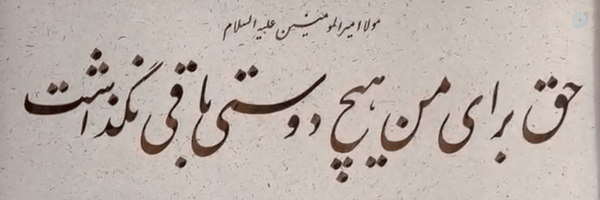 مولا امیرالمومنین علیه السلام
حق برای من هیچ دوستی باقی نگذاشت